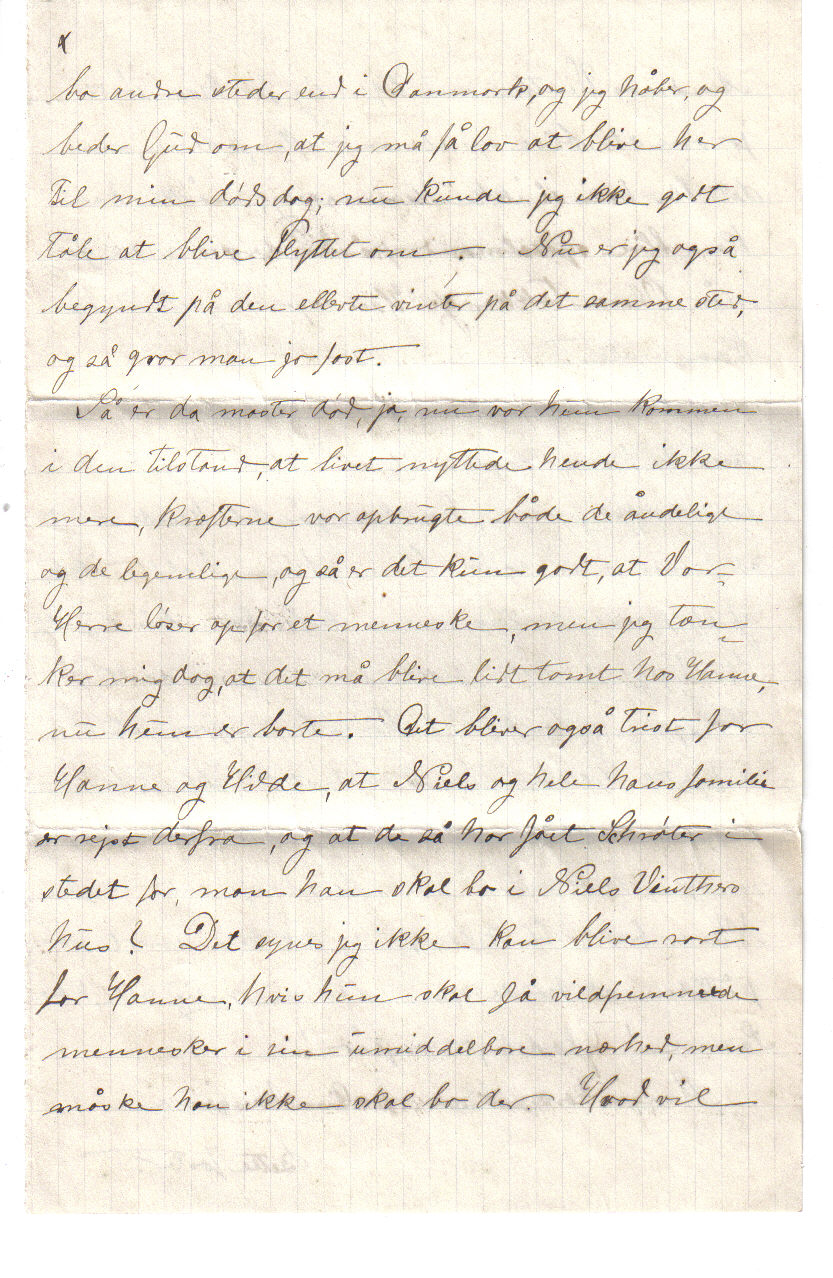 bo andre steder end i Danmark, og jeg håber, og
beder Gud om, at jeg må få lov at blive her
til min dødsdag; nu kunde jeg ikke godt
tåle at blive flyttet om. Nu er jeg også
begyndt på den ellevte vinter på det samme sted,
og så gror man jo fast.
Så er da moster død, ja, nu var hun kommen
i den tilstand, at livet nyttede hende ikke
mere, kræfterne var opbrugte både de åndelige
og de legemlige, og så er det kun godt, at Vor-
Herre løser op for et menneske, men jeg tæn-
ker mig dog, at det må blive lidt tomt hos Hanne,
nu hun er borte. Det bliver også trist for
Hanne og Hilde, at Niels og hele hans familie
er rejst derfra, og at de så har fået Schrøter i
stedet for, mon han skal bo i Niels Vinthers
hus? Det synes jeg ikke kan blive rart
for Hanne, hvis hun skal få vildfremmede
mennesker i sin umiddelbare nærhed, men
måske han ikke skal bo der. Hvad vil